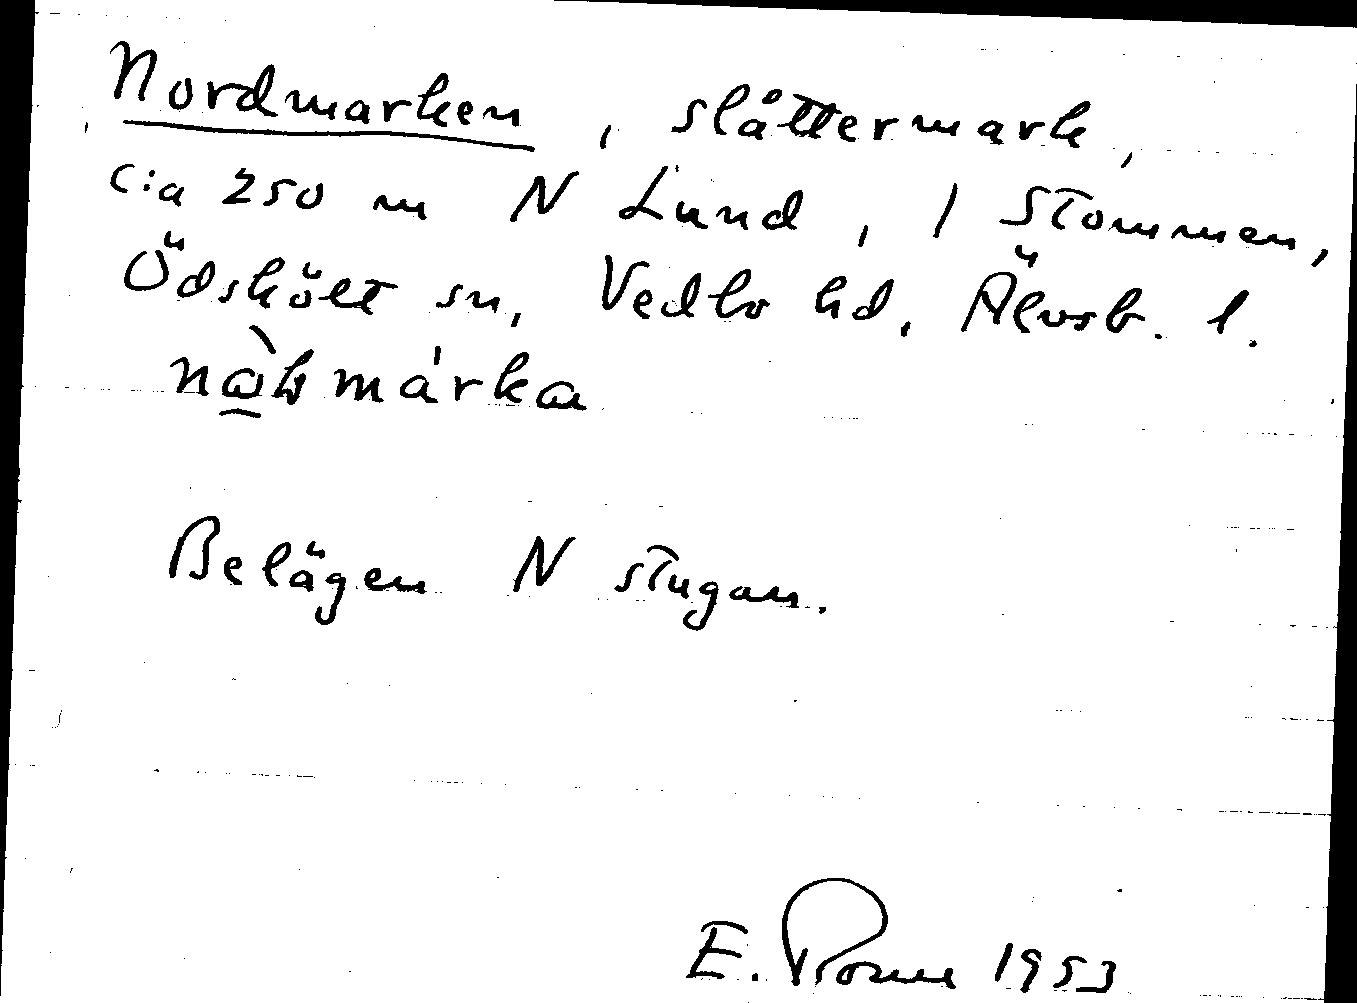 Nordmarken, slåttermark,
c:a 250 m N Lund, 1 Stommen,
Ödskölt sn, Vedbo hd, Älvsb. l.
márka
Belägen N stugan.
E. 1953